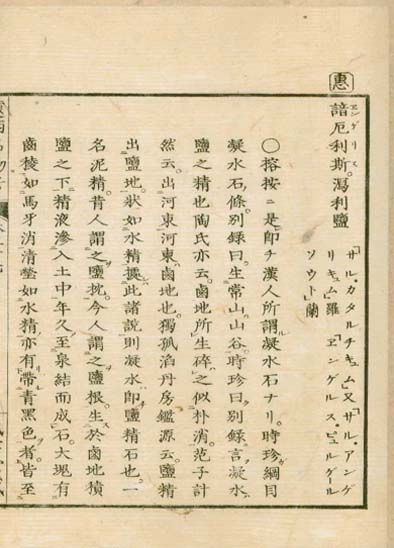 惠
諳厄利斯。瀉利鹽
エンゲリス
「サル、カタルチキュム」又「サル、アンゲ
リキュム」羅「エンゲルス、ビュルゲール
ソウト」蘭
〇榕按ニ是即チ漢人所謂凝水石ナリ。時珍綱目
凝水石條。別録曰。生常山山谷。時珍曰。別録言凝水
鹽之精也。陶氏亦云。鹵地所生。碎之似朴消。范子計
然云。出河東。河東鹵地也。獨孤滔丹房鑑源云。鹽精
出鹽地。狀如水精。據此諸說則凝水即鹽精石也。一
名泥精。昔人謂之鹽枕。今人謂之鹽根。生於鹵地積
鹽之下。精液滲入土中。年久至泉結而成石。大塊有
齒稜。如馬牙消。清瑩如水精。亦有帶青黑色者。皆至